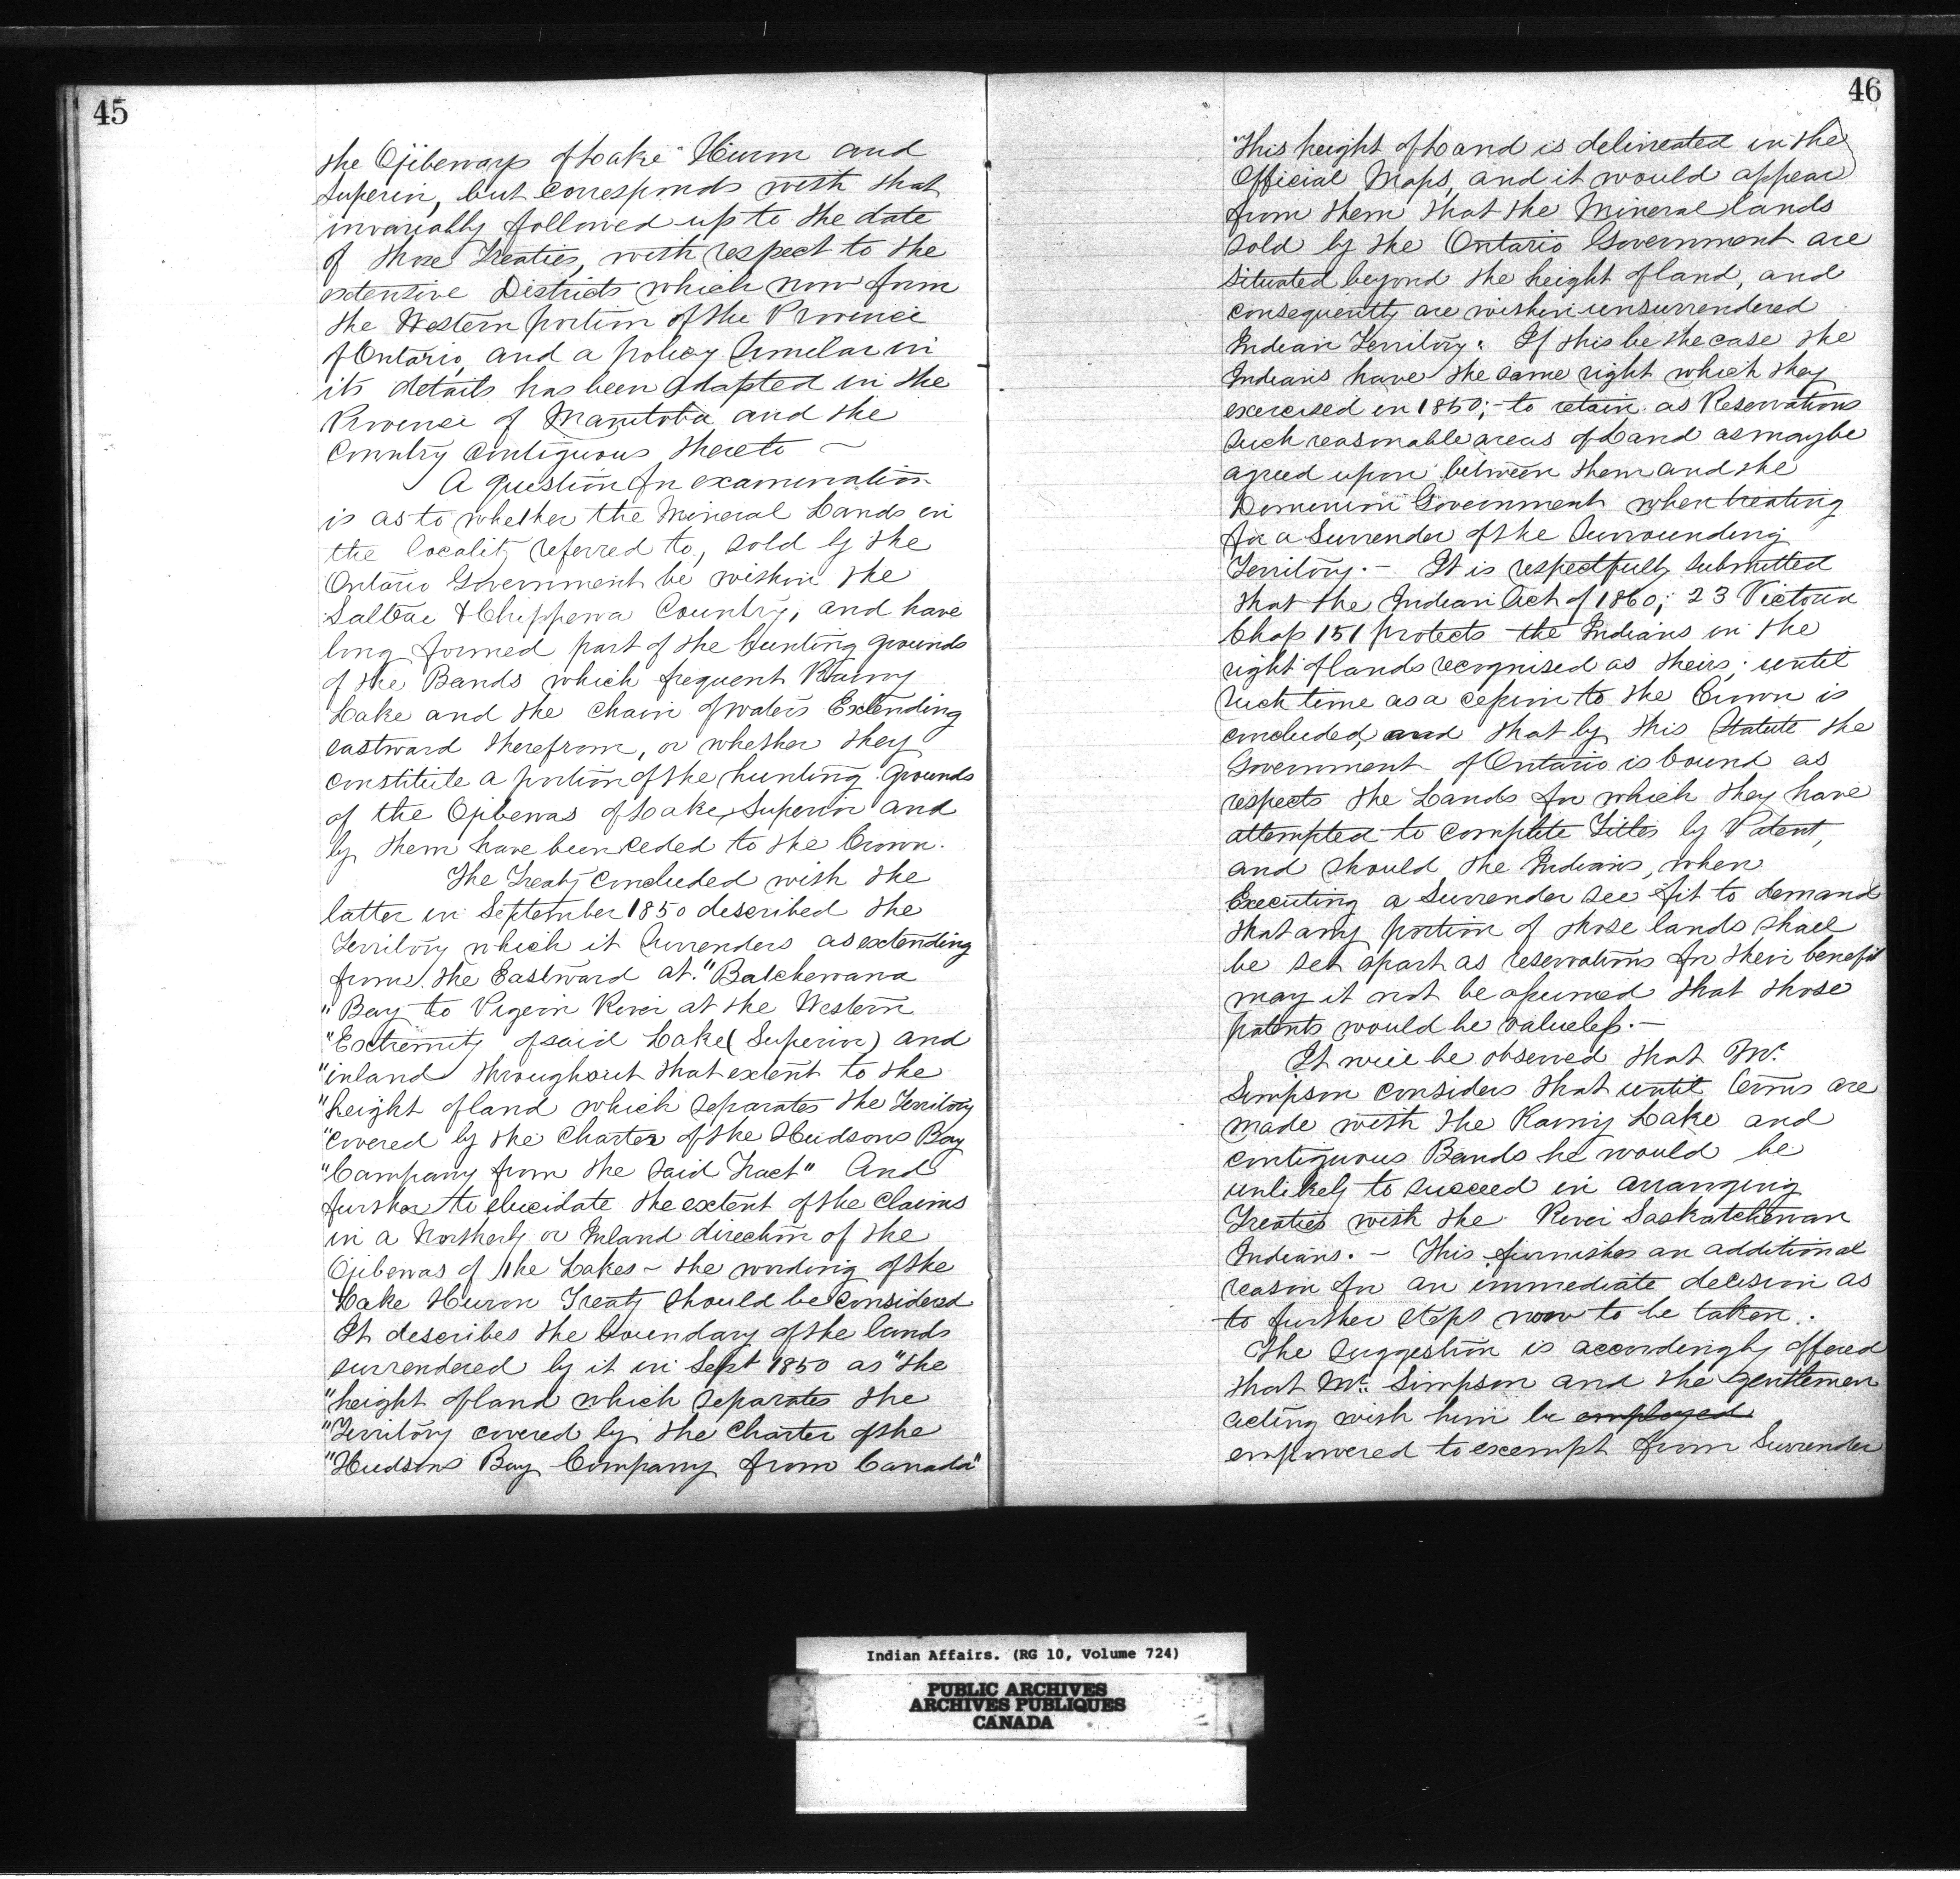 45
the Ojibeways of Lake Huron and
Superior, but corresponds with that
invariably followed up to the date
of those Treaties, with respect to the
extensive Districts which now form
the Western portion of the Province
of Ontario, and a policy similar in
its details has been adapted in the
Province of Manitoba and the
Country Contiguous thereto —
A question for examination
is as to whether the Mineral Lands in
the locality referred to, sold by the
Ontario Government be within the
Salteae & Chippewa Country, and have
long formed part of the hunting grounds
of the Bands which frequent Rainy
Lake and the chain of waters Extending
eastward therefrom, or whether they
constitute a portion of the hunting grounds
of the Ojibewas of Lake Superior and
by them have been ceded to the Crown.
The Treaty concluded with the
latter in September 1850 described the
Territory which it surrenders as extending
from the Eastward at "Batchewana
"Bay to Pigeon River at the Western
"Extremity of said Lake (Superior) and
"inland throughout that extent to the
"height of land which separates the Territory
"covered by the Charter of the Hudsons Bay
"Company from the said Tract" And
further to elucidate the extent of the claims
in a Northerly or Inland direction of the
Ojibewas of the Lakes – the wording of the
Lake Huron Treaty should be considered
It describes the boundary of the lands
surrendered by it in Sept 1850 as "the
"height of land which separates the
"Territory covered by the Charter of the
"Hudsons Bay Company from Canada"
46
"This height of Land is delineated in the
Official Maps, and it would appear
from them that the Mineral lands
sold by the Ontario Government are
situated beyond the height of land, and
consequently are within unsurrendered
Indian Territory. If this be the case the
Indians have the same right which they
exercised in 1850; to retain as Reservations
such reasonable areas of Land as maybe
agreed upon between them and the
Dominion Government when treating
for a Surrender of the surrounding
Territory. — It is respectfully submitted
that the Indian Act of 1860; 23 Victoria
Chap 151 protects the Indians in the
right of lands recognised as theirs; until
such time as a cession to the Crown is
concluded, and that by this Statute the
Government of Ontario is bound as
respects the Lands for which they have
attempted to complete Titles by Patent,
and should the Indians, when
Executing a Surrender see fit to demand
that any portion of those lands shall
be set apart as reservations for their benefit
may it not be assumed that those
patents would be valueless. —
It will be observed that Mr.
Simpson considers that until terms are
made with the Rainy Lake and
contiguous Bands he would be
unlikely to succeed in arranging
Treaties with the River Saskatchewan
Indians. — This furnishes an additional
reason for an immediate decision as
to further steps now to be taken.
The suggestion is accordingly offered
that Mr. Simpson and the gentlemen
acting with him be employed
empowered to exempt from Surrender
Indian Affairs. (RG 10, Volume 724)
PUBLIC ARCHIVES
ARCHIVES PUBLIQUES
CANADA